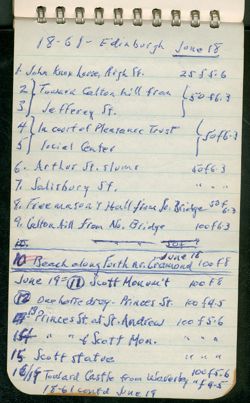 18-61- Edinburgh June 18
1. John Knox House, High St. 25 f 5.6
2 } Toward Calton hill from } 50 f 6.3
3 } Jeffrey St.
4 } In court of Pleasance Trust } 50 f 6.3
5 } Social Center
6. Arthur St. slums 50 f 6.3
7. Salisbury St. " "
8. Freemason's Hall from So. Bridge 50 f 6.3
9. Calton hill from No. Bridge 100 f 6.3
10.
June 18
10 Beach along Forth nr. Cramond 100 f 8
June 19 = 11 Scott Monum't 100 f 8
12 Princes St. 100 f 4.5
13 Princes St. at St. Andrew 100 f 5.6
14 " " & Scott Mon. " "
15 Scott statue " "
16/17 Toward Castle from Waverley 100 f 5.6
18-61 cont'd June 19 " f 4.5